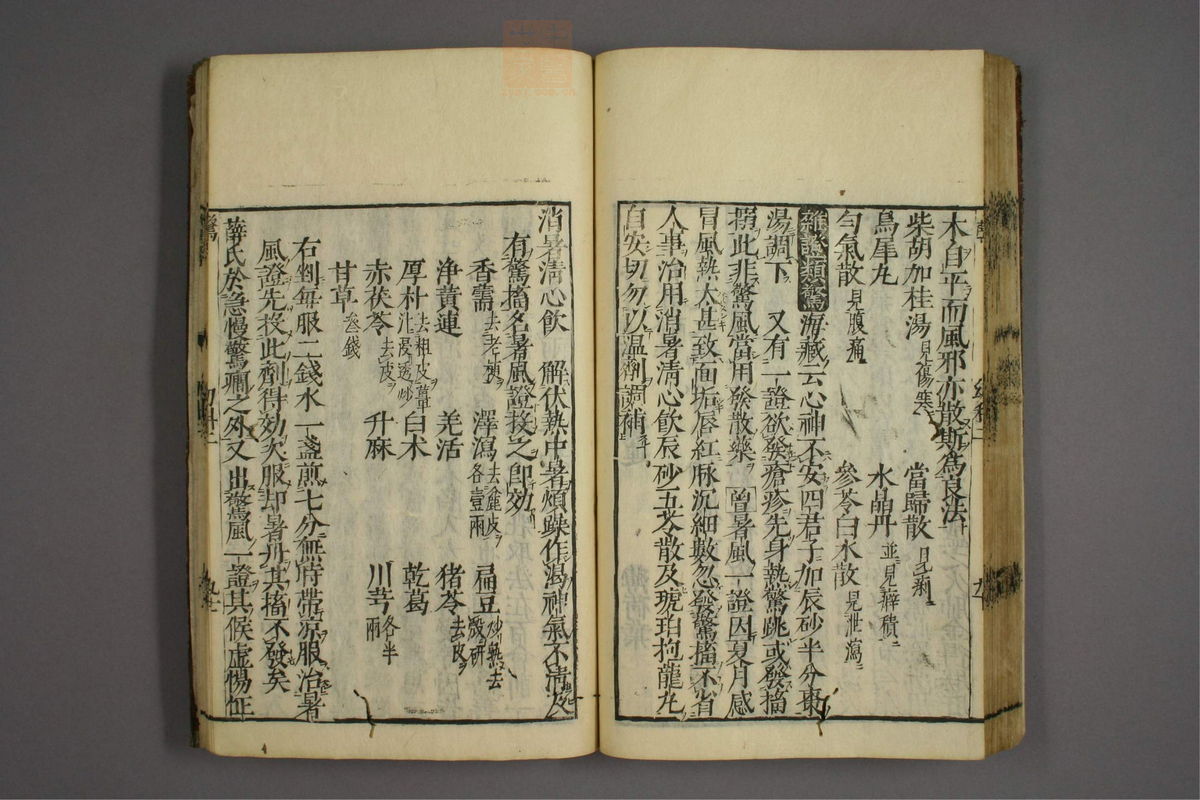 木自平而風邪亦散斯爲良法
柴胡加桂湯見傷寒 當歸散見痢
烏犀丸 水晶丹並見癖積
勻氣散見腹痛 參苓白朮散見泄瀉
雜證類驚 海藏云心神不安四君子加辰砂半分棗
湯調下 又有一證欲發瘡疹先身熱驚跳或發搐
搦此非驚風當用發散藥 曾暑風一證因夏月感
冒風熱太甚致面垢唇紅脉沉細數忽發驚搐不省
人事治用消暑清心飲辰砂五苓散及琥珀抱龍丸
自安切勿以溫劑調補
消暑清心飲 解伏熱中暑煩躁作渴神氣不清及
有驚搐名暑風證投之即効
香薷去老梗 澤瀉去麄皮各壹兩 扁豆炒熟去殼研
净黄連 羌活 猪苓去皮
厚朴去粗皮薑汁浸透炒 白朮 乾葛
赤茯苓去皮 升麻 川芎各半兩
甘草叁錢
右剉每服二錢水一盞煎七分無時帶凉服治暑
風證先投此劑得効次服却暑丹其搐不發矣
薛氏於急慢驚癎之外又出驚風一證其候虛惕怔
驚
幼科二
九